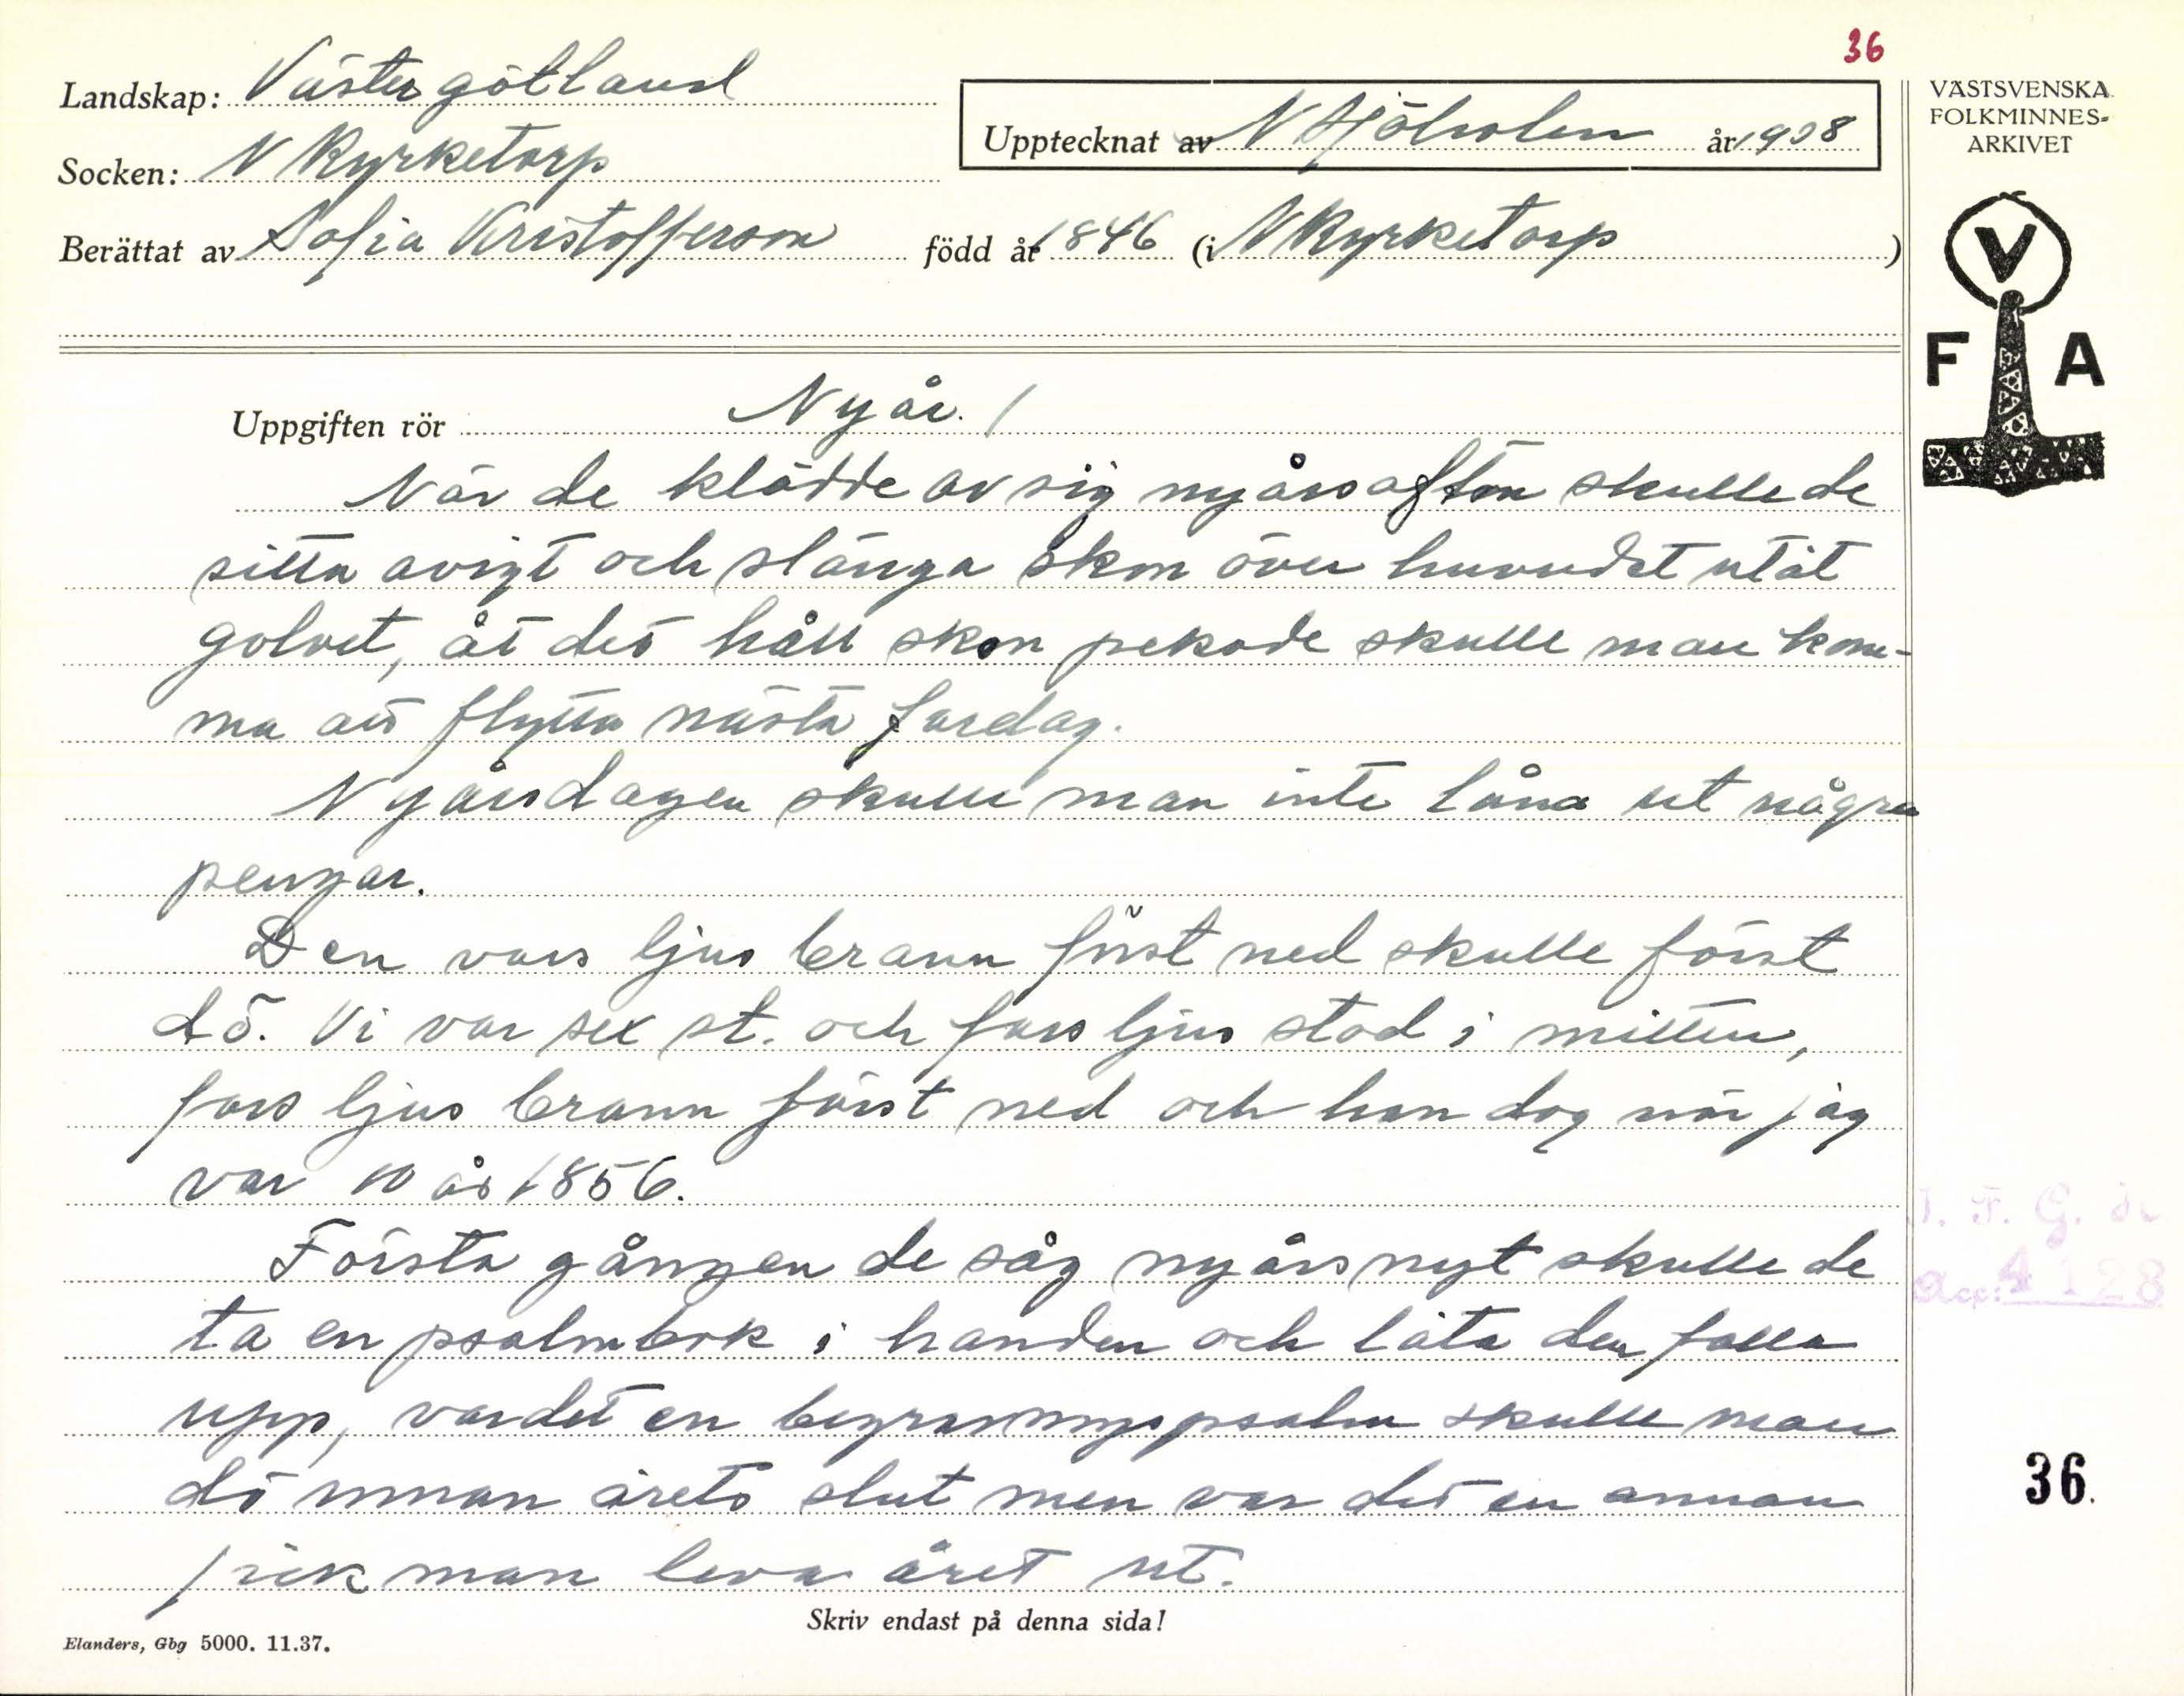 36
Landskap: Västergötland
Socken: N Kyrketorp
Upptecknat av N Sjöholm år 1938
Berättat av Sofia Kristofferson född år 1846 (i N Kyrketorp )
VÄSTSVENSKA
FOLKMINNES-
ARKIVET
V
F A
Uppgiften rör Nyår. /
När de klädde av sig nyårsafton skulle de
sitta avigt och slänga skon över huvudet utåt
golvet, åt det håll skon pekade skulle man kom-
ma att flytta nästa fardag.
Nyårsdagen skulle man inte låna ut några
pengar.
Den vars ljus brann först ned skulle först
dö. Vi var sex st. och fars ljus stod i mitten,
fars ljus brann först ned och han dog när jag
var 10 år 1856.
Första gången de såg nyårsnyt skulle de
ta en psalmbok i handen och låta den falla
upp, var det en begravningspsalm skulle man
dö innan årets slut men var det en annan
fick man leva året ut.
I. F. G. 
Acc: 4128
36.
Skriv endast på denna sida!
Elanders, Gbg 5000. 11.37.